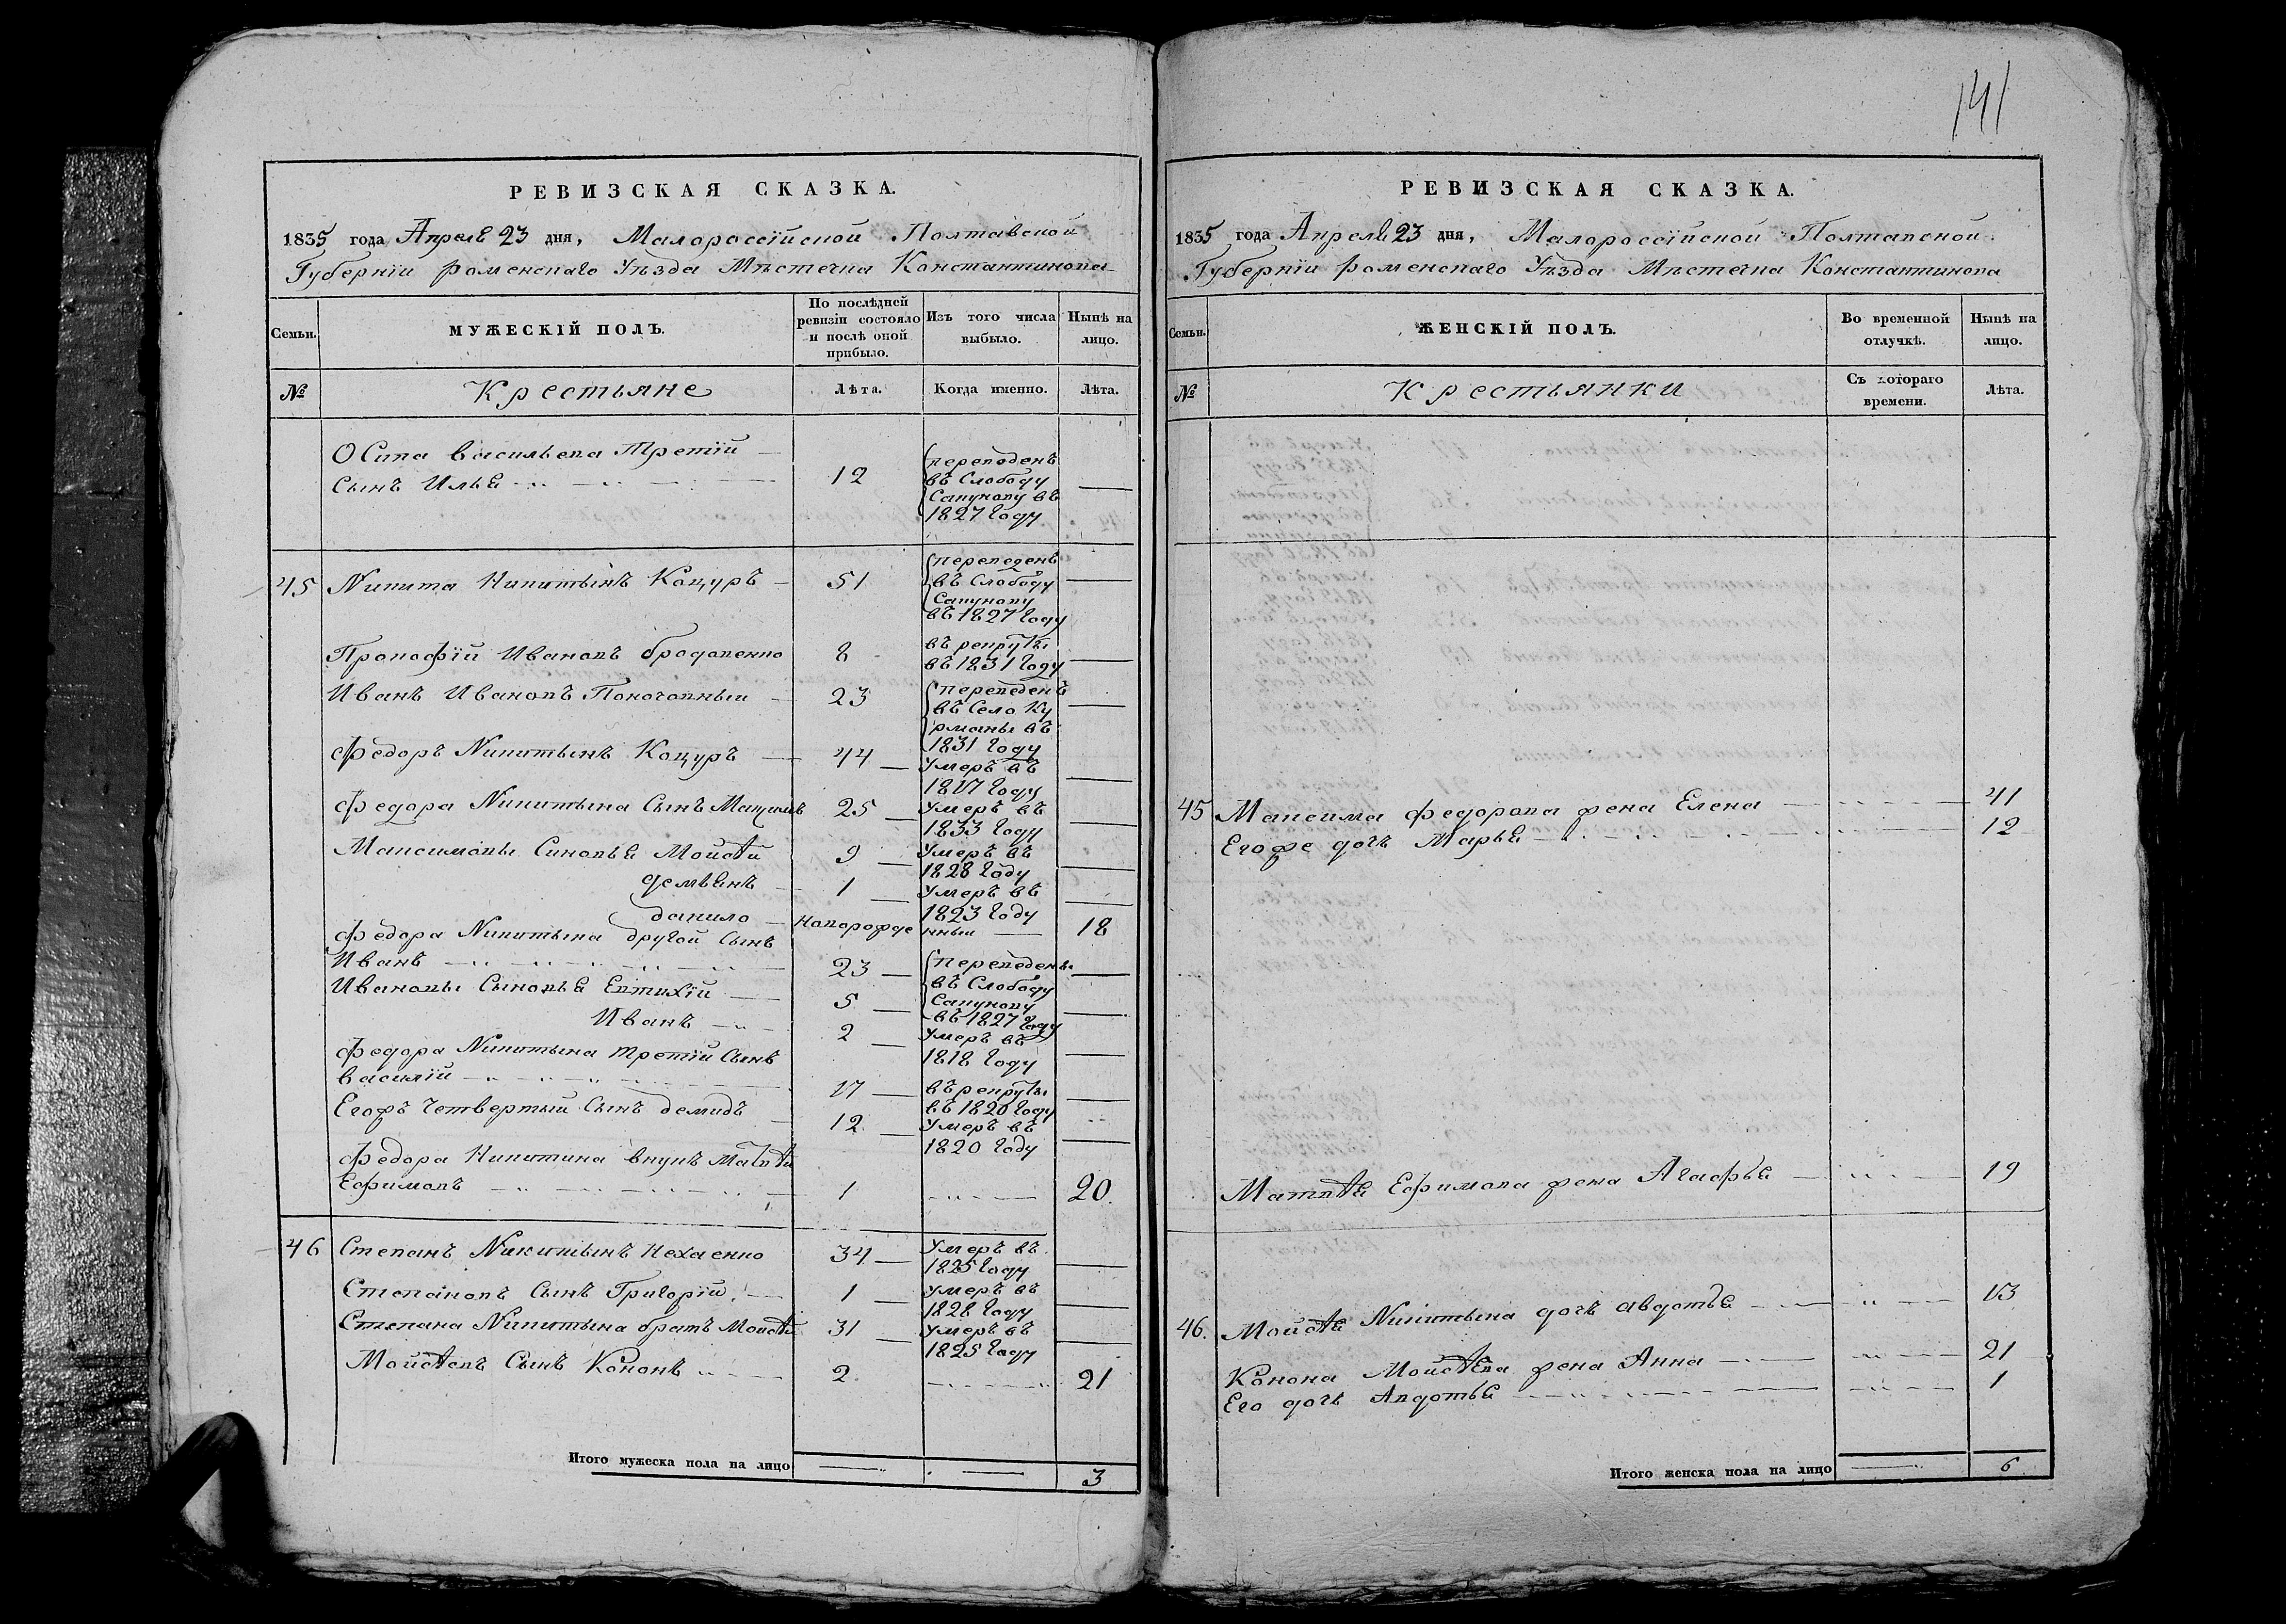 141
РЕВИЗСКАЯ СКАЗКА.
1835 года Апреля 23 дня, Малороссійской Полтавской
Губерніи роменскаго Уѣзда Мѣстечка Константинова
Семьи.
МУЖЕСКІЙ ПОЛЪ.
По послѣдней ревизіи состояло и послѣ оной прибыло.
Изъ того числа выбыло.
Нынѣ на лицо.
№
Крестьяне
Лѣта.
Когда именно.
Лѣта.
Осипа васильева Третій
Сынъ Илья 12
переведенъ
въ Слободу
Сапунову въ
1827 году
45 Никита Никитинъ Коцуръ 51
переведенъ
въ Слободу
Сапунову
въ 1827 году
Прокофій Ивановъ бродовенко 8
въ рекруты
въ 1831 году
Иванъ Ивановъ 23
переведенъ
въ Село Ку
рманы въ
1831 году
федоръ Никитинъ Коцуръ 44
Умеръ въ
1817 году
федора Никитина Сынъ Максимъ 25
Умеръ въ
1833 году
Максимовы Синовья Мойсѣй 9
Умеръ въ
1828 году
демьянъ 1
Умеръ въ
1823 году
данило новорожде нный 18
федора Никитина другой Сынъ
Иванъ 23
переведенъ
въ Слободу
Сапунову
въ 1827 году
Ивановы Сыновья Евтихій 5
Иванъ 2
Умеръ въ
1818 году
федора Никитина третій Сынъ
василій 17
въ рекруты
въ 1820 году
Егожъ четвертый Сынъ демидъ 12
Умеръ въ
1820 году
федора Никитина внукъ Матвѣй
Ефимовъ 1 20
46 Степанъ Никитинъ Нехаенко 34
Умеръ въ
1825 году
Степановъ Сынъ Григорій 1
Умеръ въ
1828 году
Степана Никитина братъ Мойсѣй 31
Умеръ въ
1825 году
Мойсѣевъ Сынъ Кононъ 2 21
Итого мужеска пола на лицо 3
РЕВИЗСКАЯ СКАЗКА.
1835 года Апреля 23 дня, Малороссійской Полтавской
Губерніи роменскаго Уѣзда Мѣстечка Константинова
Семьи.
ЖЕНСКІЙ ПОЛЪ.
Во временной отлучкѣ.
Нынѣ на лицо.
№
Крестьянки
Съ котораго времени.
Лѣта.
45 Максима федорова жена Елена 41
Егоже дочь Марья 12
Матвѣя Ефимова жена Агафья 19
46. Мойсѣя Никитина дочь авдотья 13
Конона Мойсѣева жена Анна 21
Его дочь Авдотья 1
Итого женска пола на лицо 6